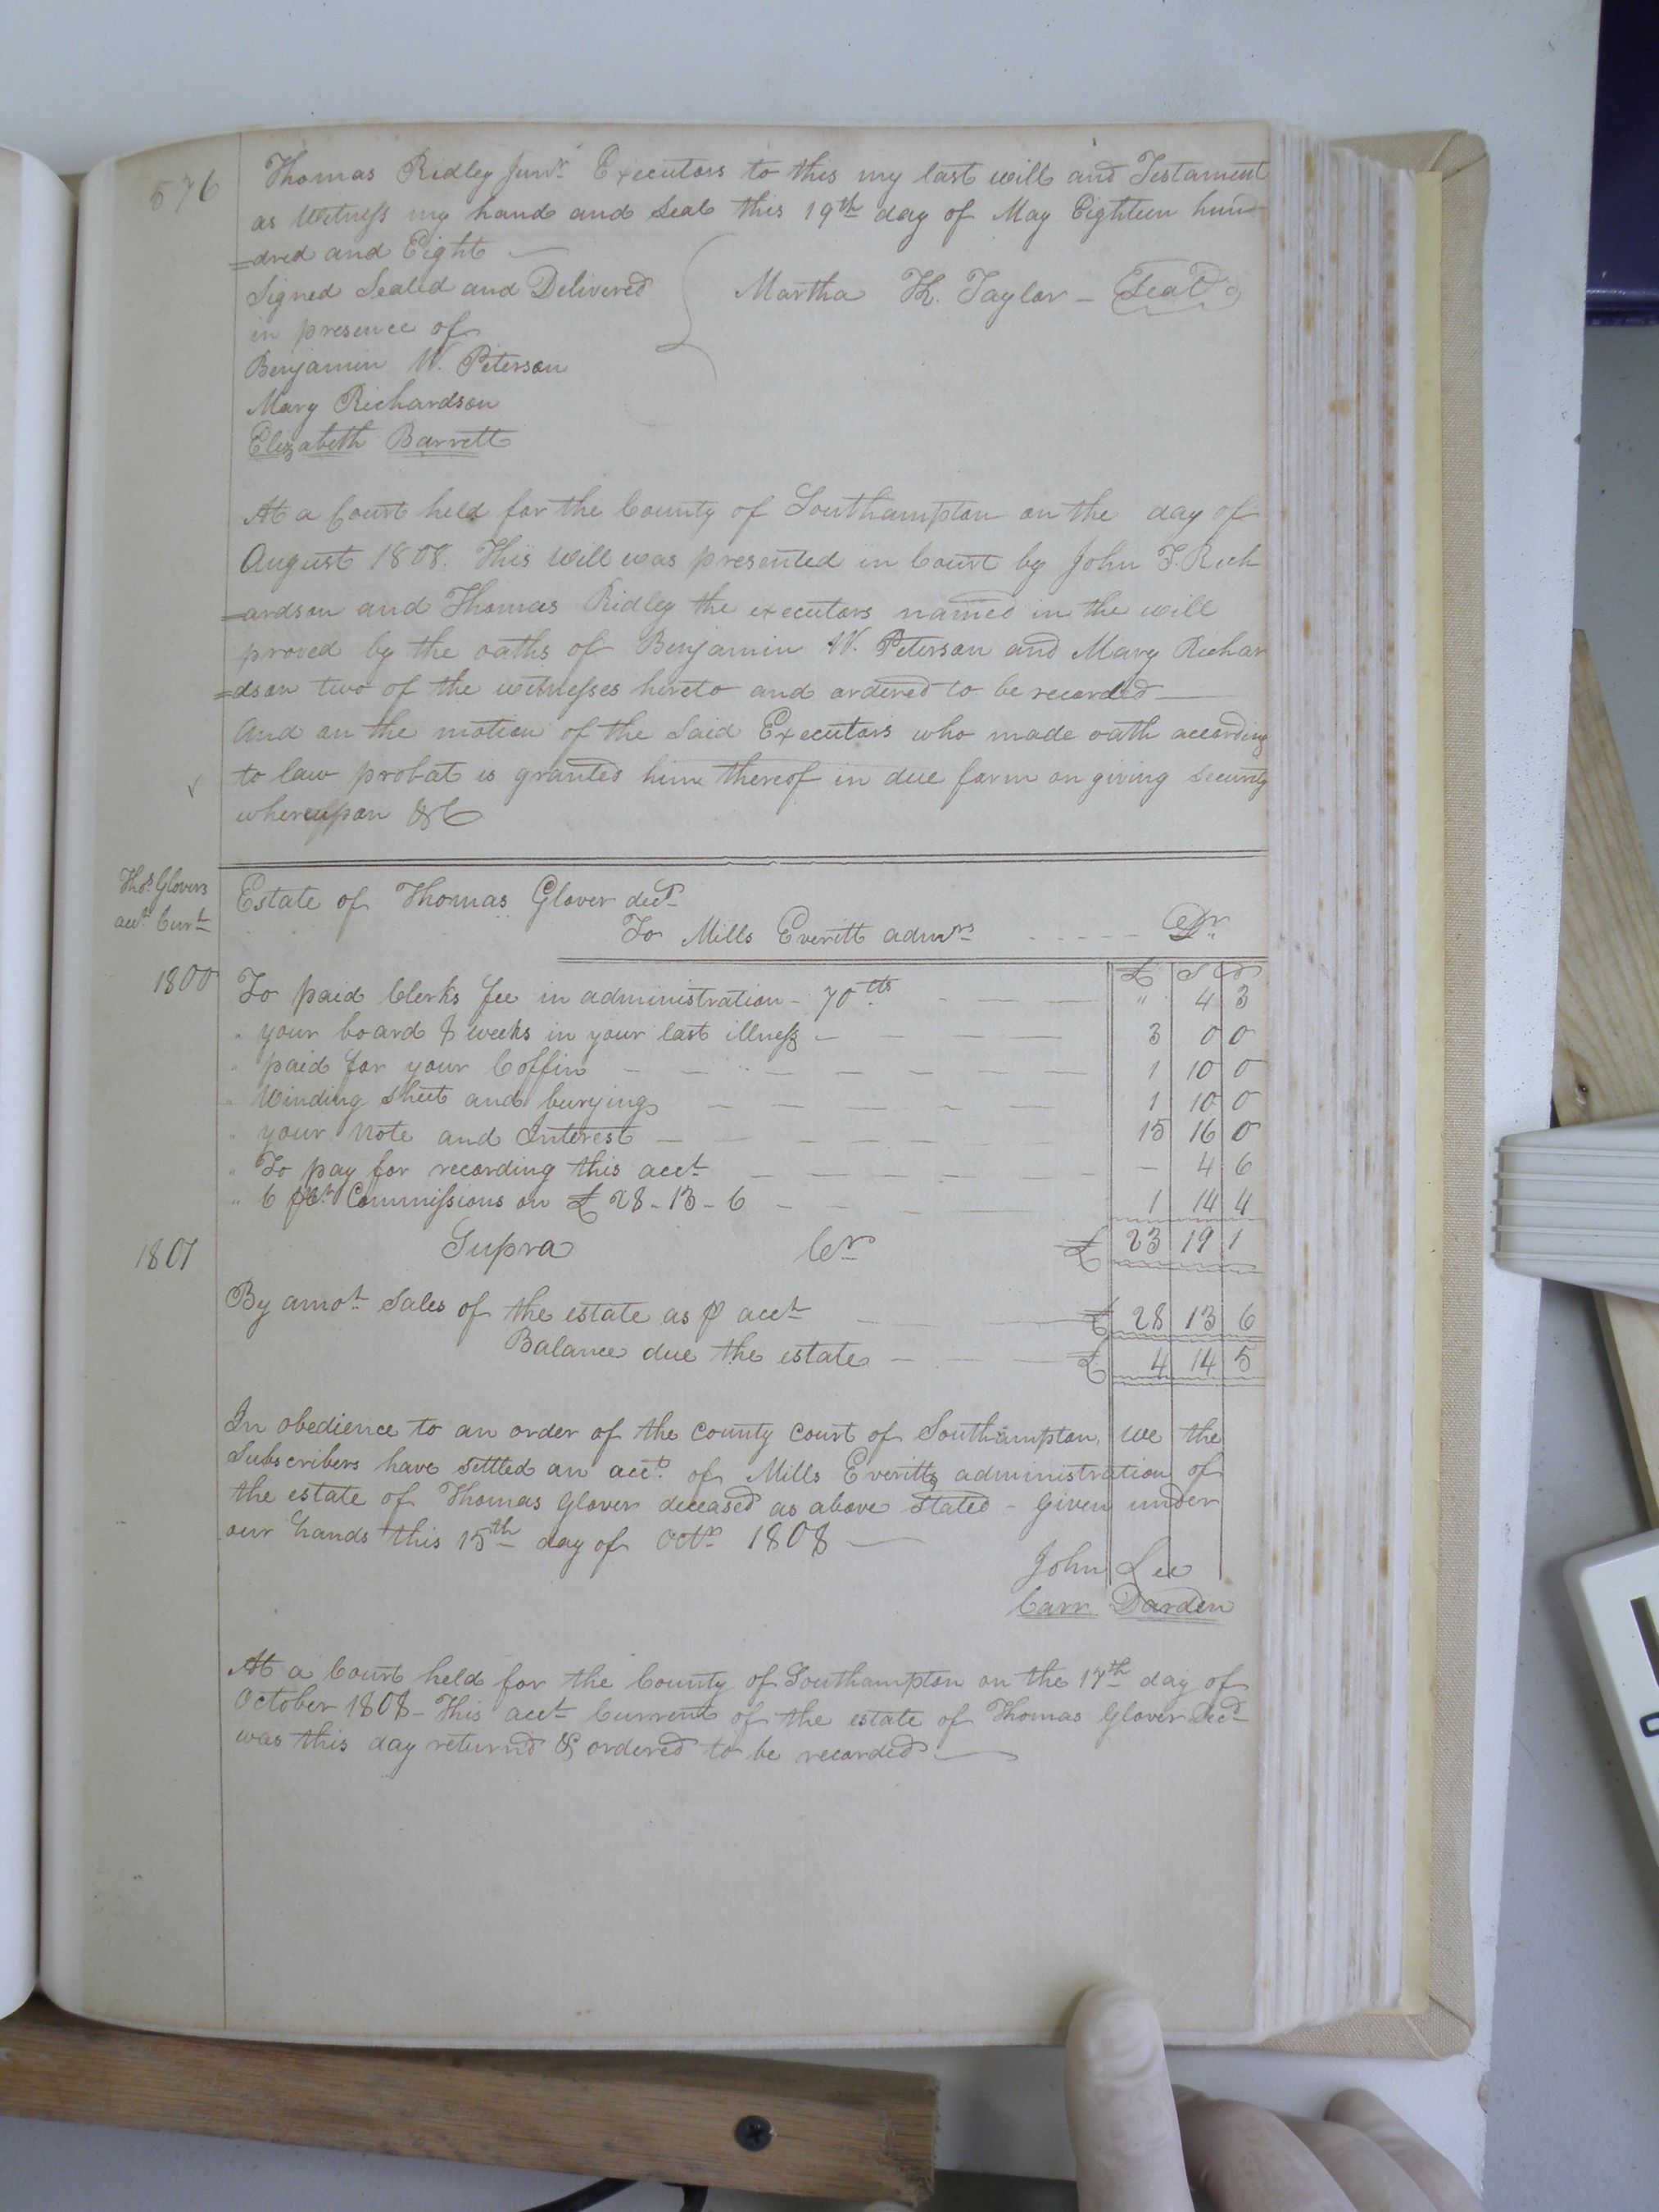 576
Thomas Ridley Junr. Executors to this my last will and Testament
as Witness my hand and Seal this 19th day of May Eighteen hun
=dred and Eight
Signed Sealed and Delivered
Martha K. Taylor - Seal
in presence of
Benjamin W. Peterson
Mary Richardson
Elizabeth Barrett
At a Court held for the County of Southampton on the day of
August 1808. This Will was presented in Court by John T. Rich
=ardson and Thomas Ridley the executors named in the will
proved by the oaths of Benjamin W. Peterson and Mary Richar
=dson two of the witnesses hereto and ordered to be recorded
And on the motion of the Said Executors who made oath according
to law probat is granted him thereof in due form on giving Security
whereupon &C
Thos. Glovers
acct. Curt.
Estate of Thomas Glover decd.
To Mills Everitt admrs Dr.
£ S D
1800 To paid Clerks fee in administration - 70 tts " 4 3
" your board 8 weeks in your last illness 3 0 0
" paid for your Coffin 1 10 0
" Winding Sheet and burying 1 10 0
" your Note and Interest 15 16 0
" To pay for recording this acct. - 4 6
" 6 pCt. Commissions on £ 28-13-6 1 14 4
1801 Supra Cr. £ 23 19 1
By amot. Sales of the estate as p acct £ 28 13 6
Balance due the estate £ 4 14 5
In obedience to an order of the County Court of Southampton, we the
Subscribers have settled an acct. of Mills Everitts administration of
the estate of Thomas Glover deceased as above Stated - Given under
our hands this 15th day of Octr. 1808
John Lee
Carr Darden
At a Court held for the County of Southampton on the 17th day of
October 1808 - This acct. Current of the estate of Thomas Glover Decd
was this day returnd & ordered to be recorded